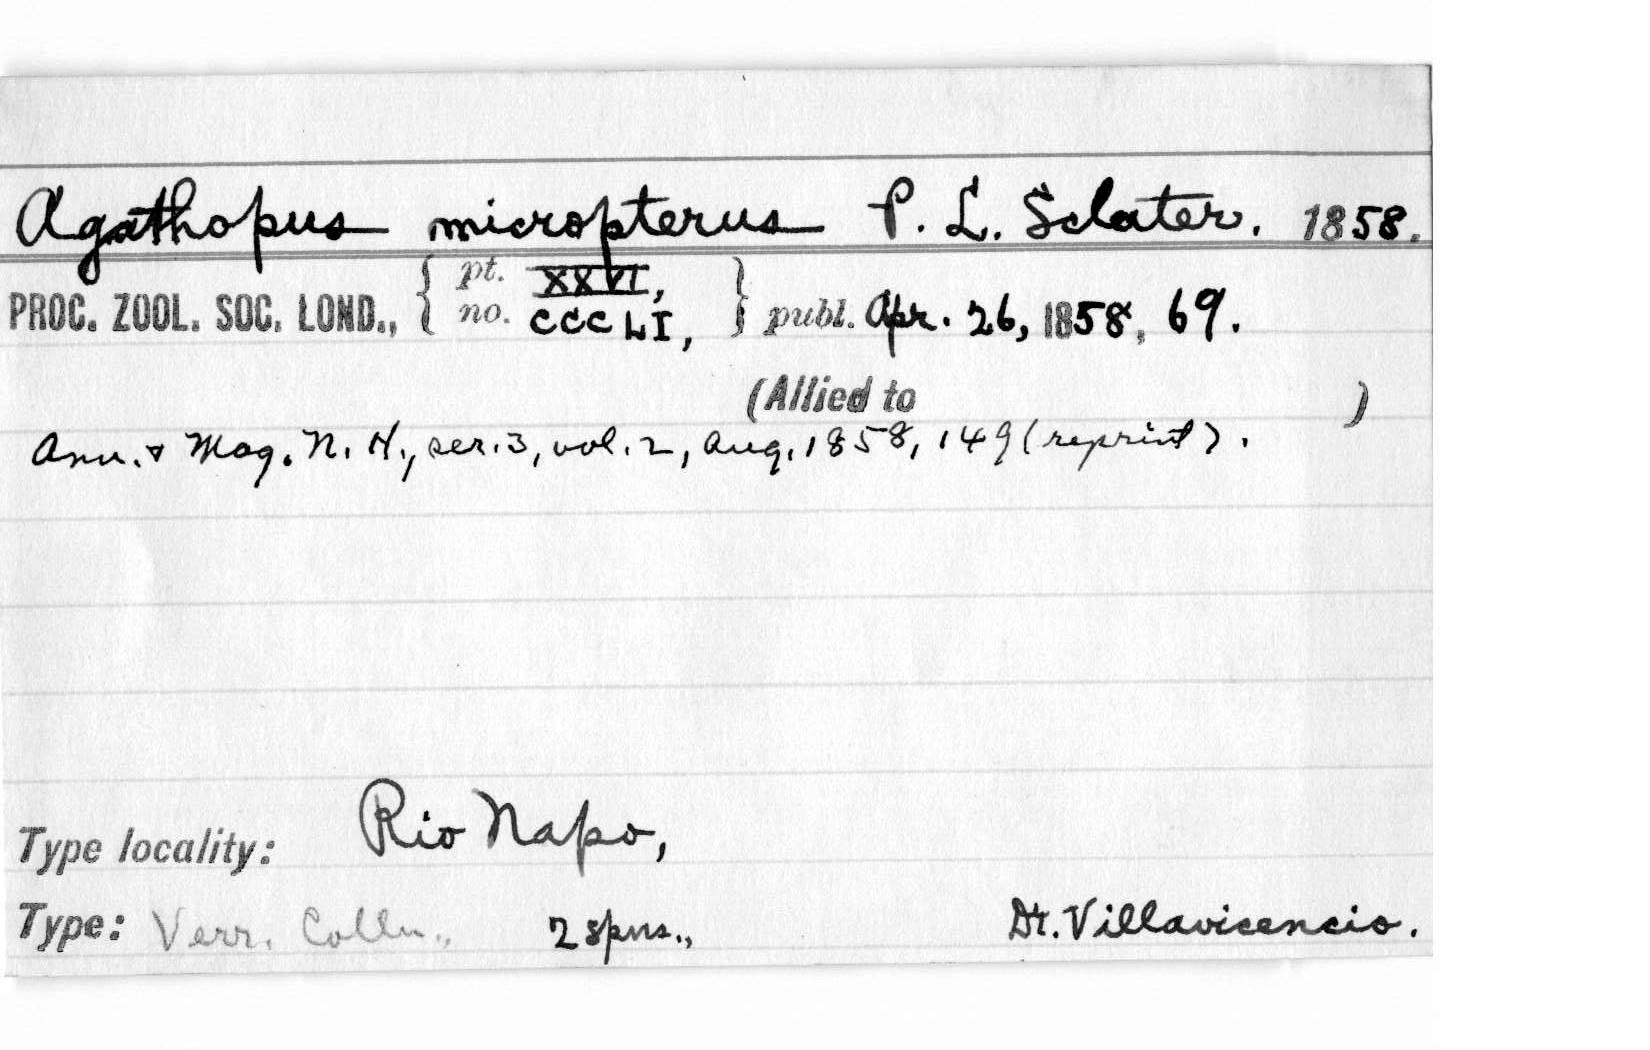 Agathopus micropterus P. L. Sclater. 1858.
PROC. ZOOL. SOC. LOND., { pt. XXVI, no. CCCLI, } publ. Apr. 26, 1858, 69.
(Allied to )
Ann. & Mag. N. H., ser. 3, vol. 2, Aug. 1858, 149 (reprint).
Type locality: Rio Napo,
Type: Verr. Colln., 2 spns., Dr. Villavicencio.